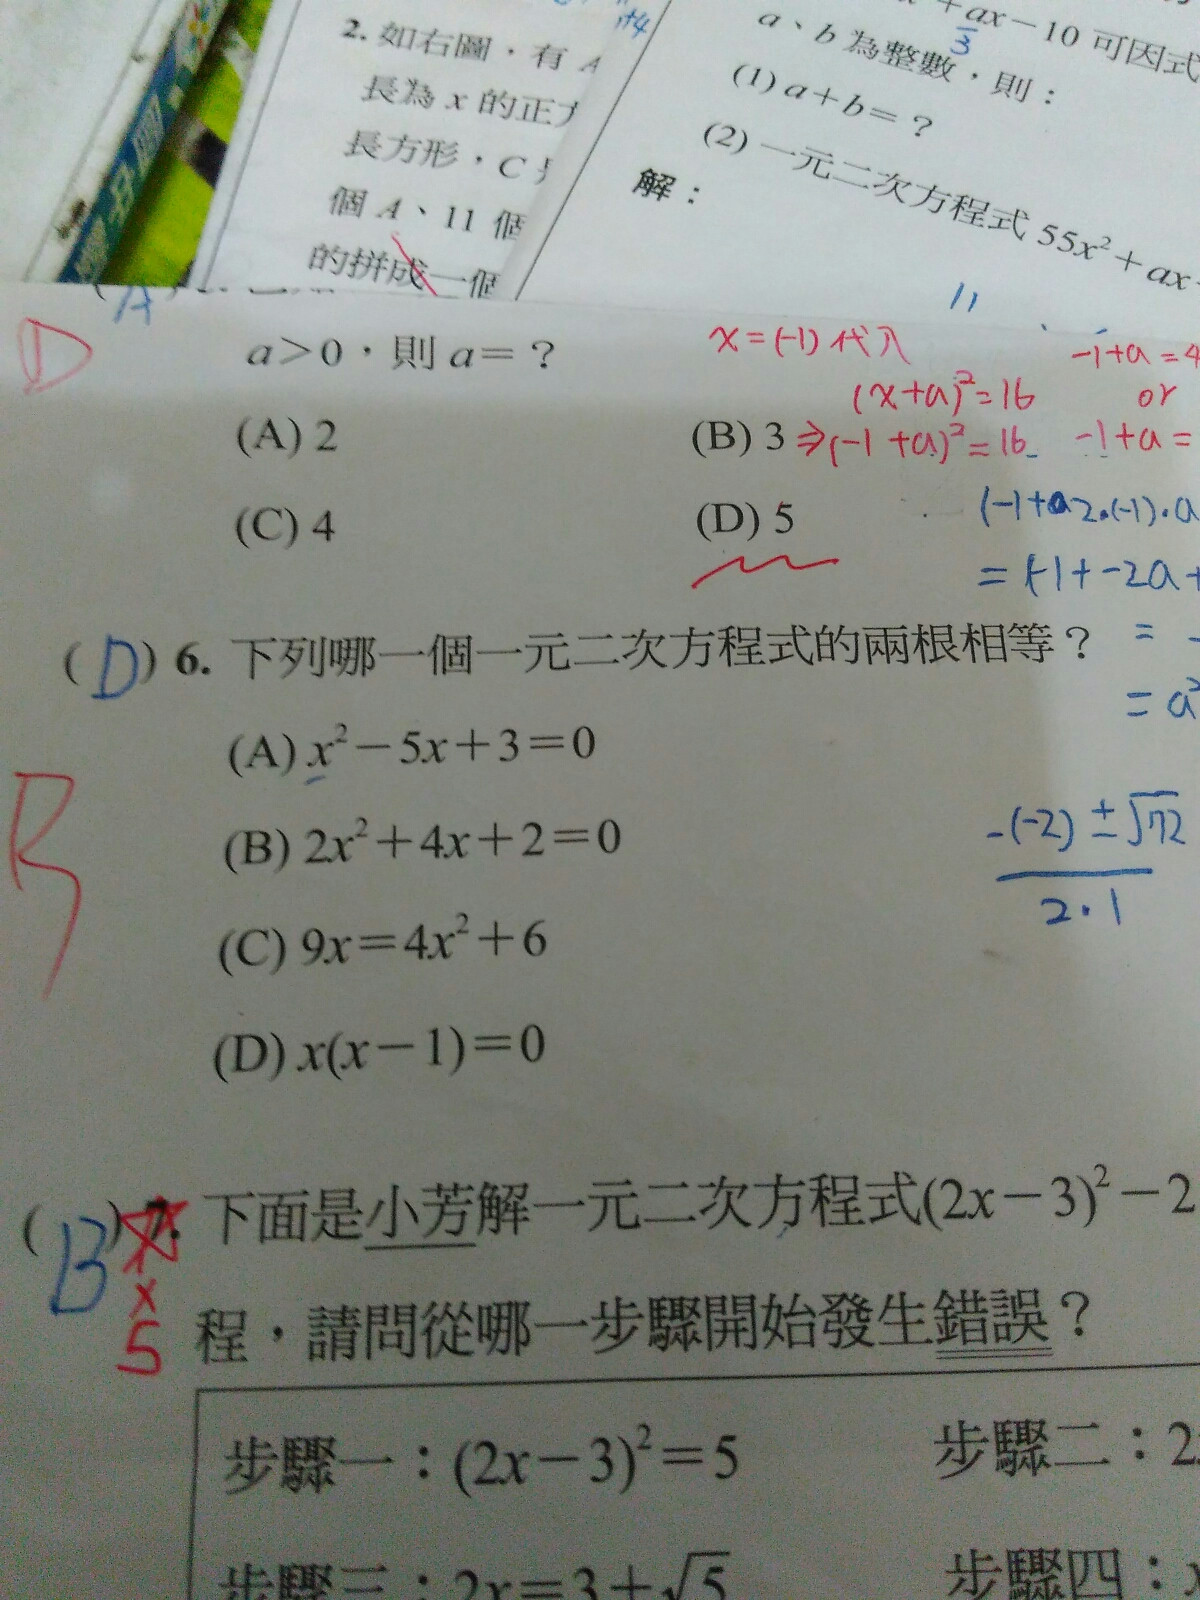 2. 如右圖，有 A
長為 x 的正方
長方形，C
個 A、11 個
的拼成一個
+ax－10 可因式
3
a、b 為整數，則：
(1) a＋b＝？
(2) 一元二次方程式 55x²＋ax
解：
11
A
D
a＞0，則 a＝？
x＝(-1) 代入
-1+a＝4
(x+a)²＝16
or
(A) 2
(B) 3
⇒(-1+a)²＝16
-1+a＝
(C) 4
(D) 5
(-1+a2·(-1)·a
＝(-1+-2a+
(D) 6. 下列哪一個一元二次方程式的兩根相等？
＝
＝a²
(A) x²－5x＋3＝0
B
(B) 2x²＋4x＋2＝0
-(-2)±√72
2·1
(C) 9x＝4x²＋6
(D) x(x－1)＝0
(B) 7. 下面是小芳解一元二次方程式(2x－3)²－2
x
5
程，請問從哪一步驟開始發生錯誤？
步驟一：(2x－3)²＝5
步驟二：2
步驟三：2x＝3＋√5
步驟四：x